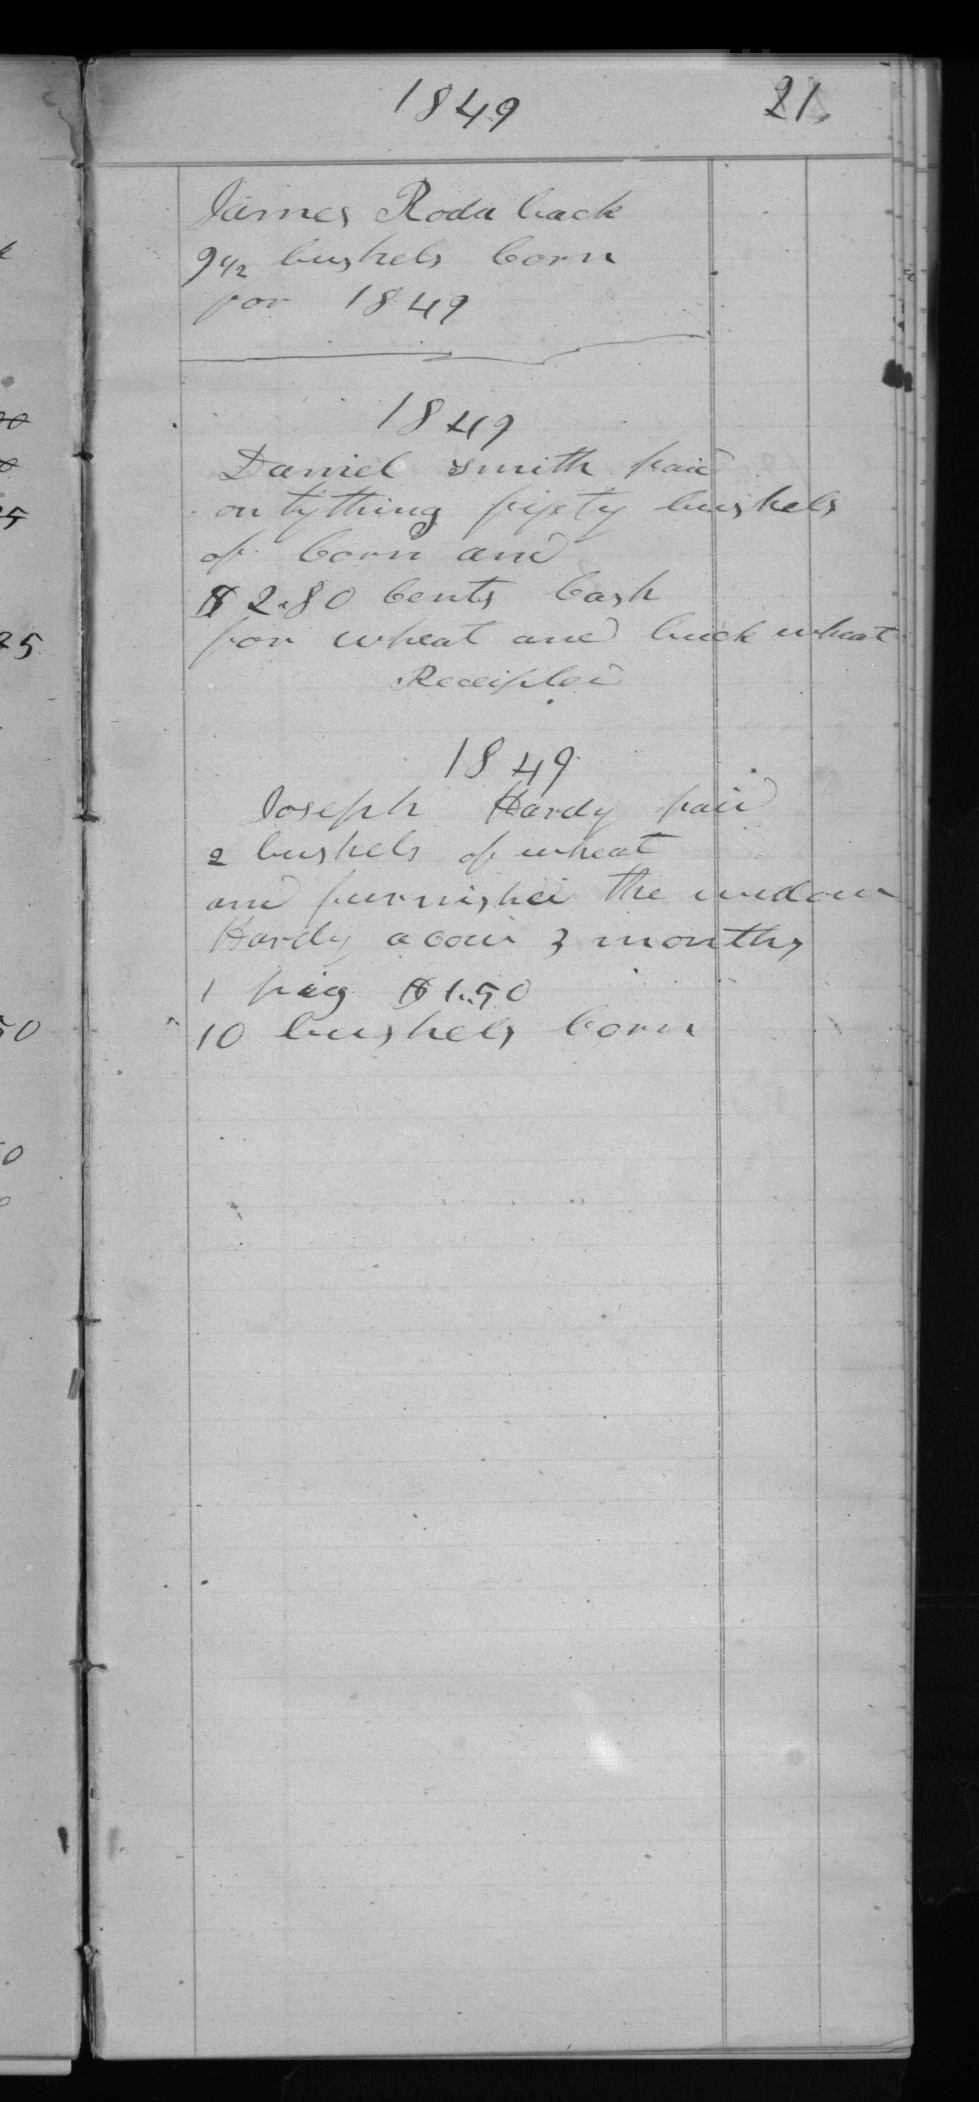 1849 21
James Rodaback
9 1/2 bushels Corn
for 1849
1849
Daniel Smith paid
on tything fifty bushels
of Corn and
$2.80 Cents Cash
for wheat and buck wheat
Receipted
1849
Joseph Hardy paid
2 bushels of wheat
and furnished the widow
Hardy a cow 3 months
1 pig $1.50
10 bushels Corn
25
25
50